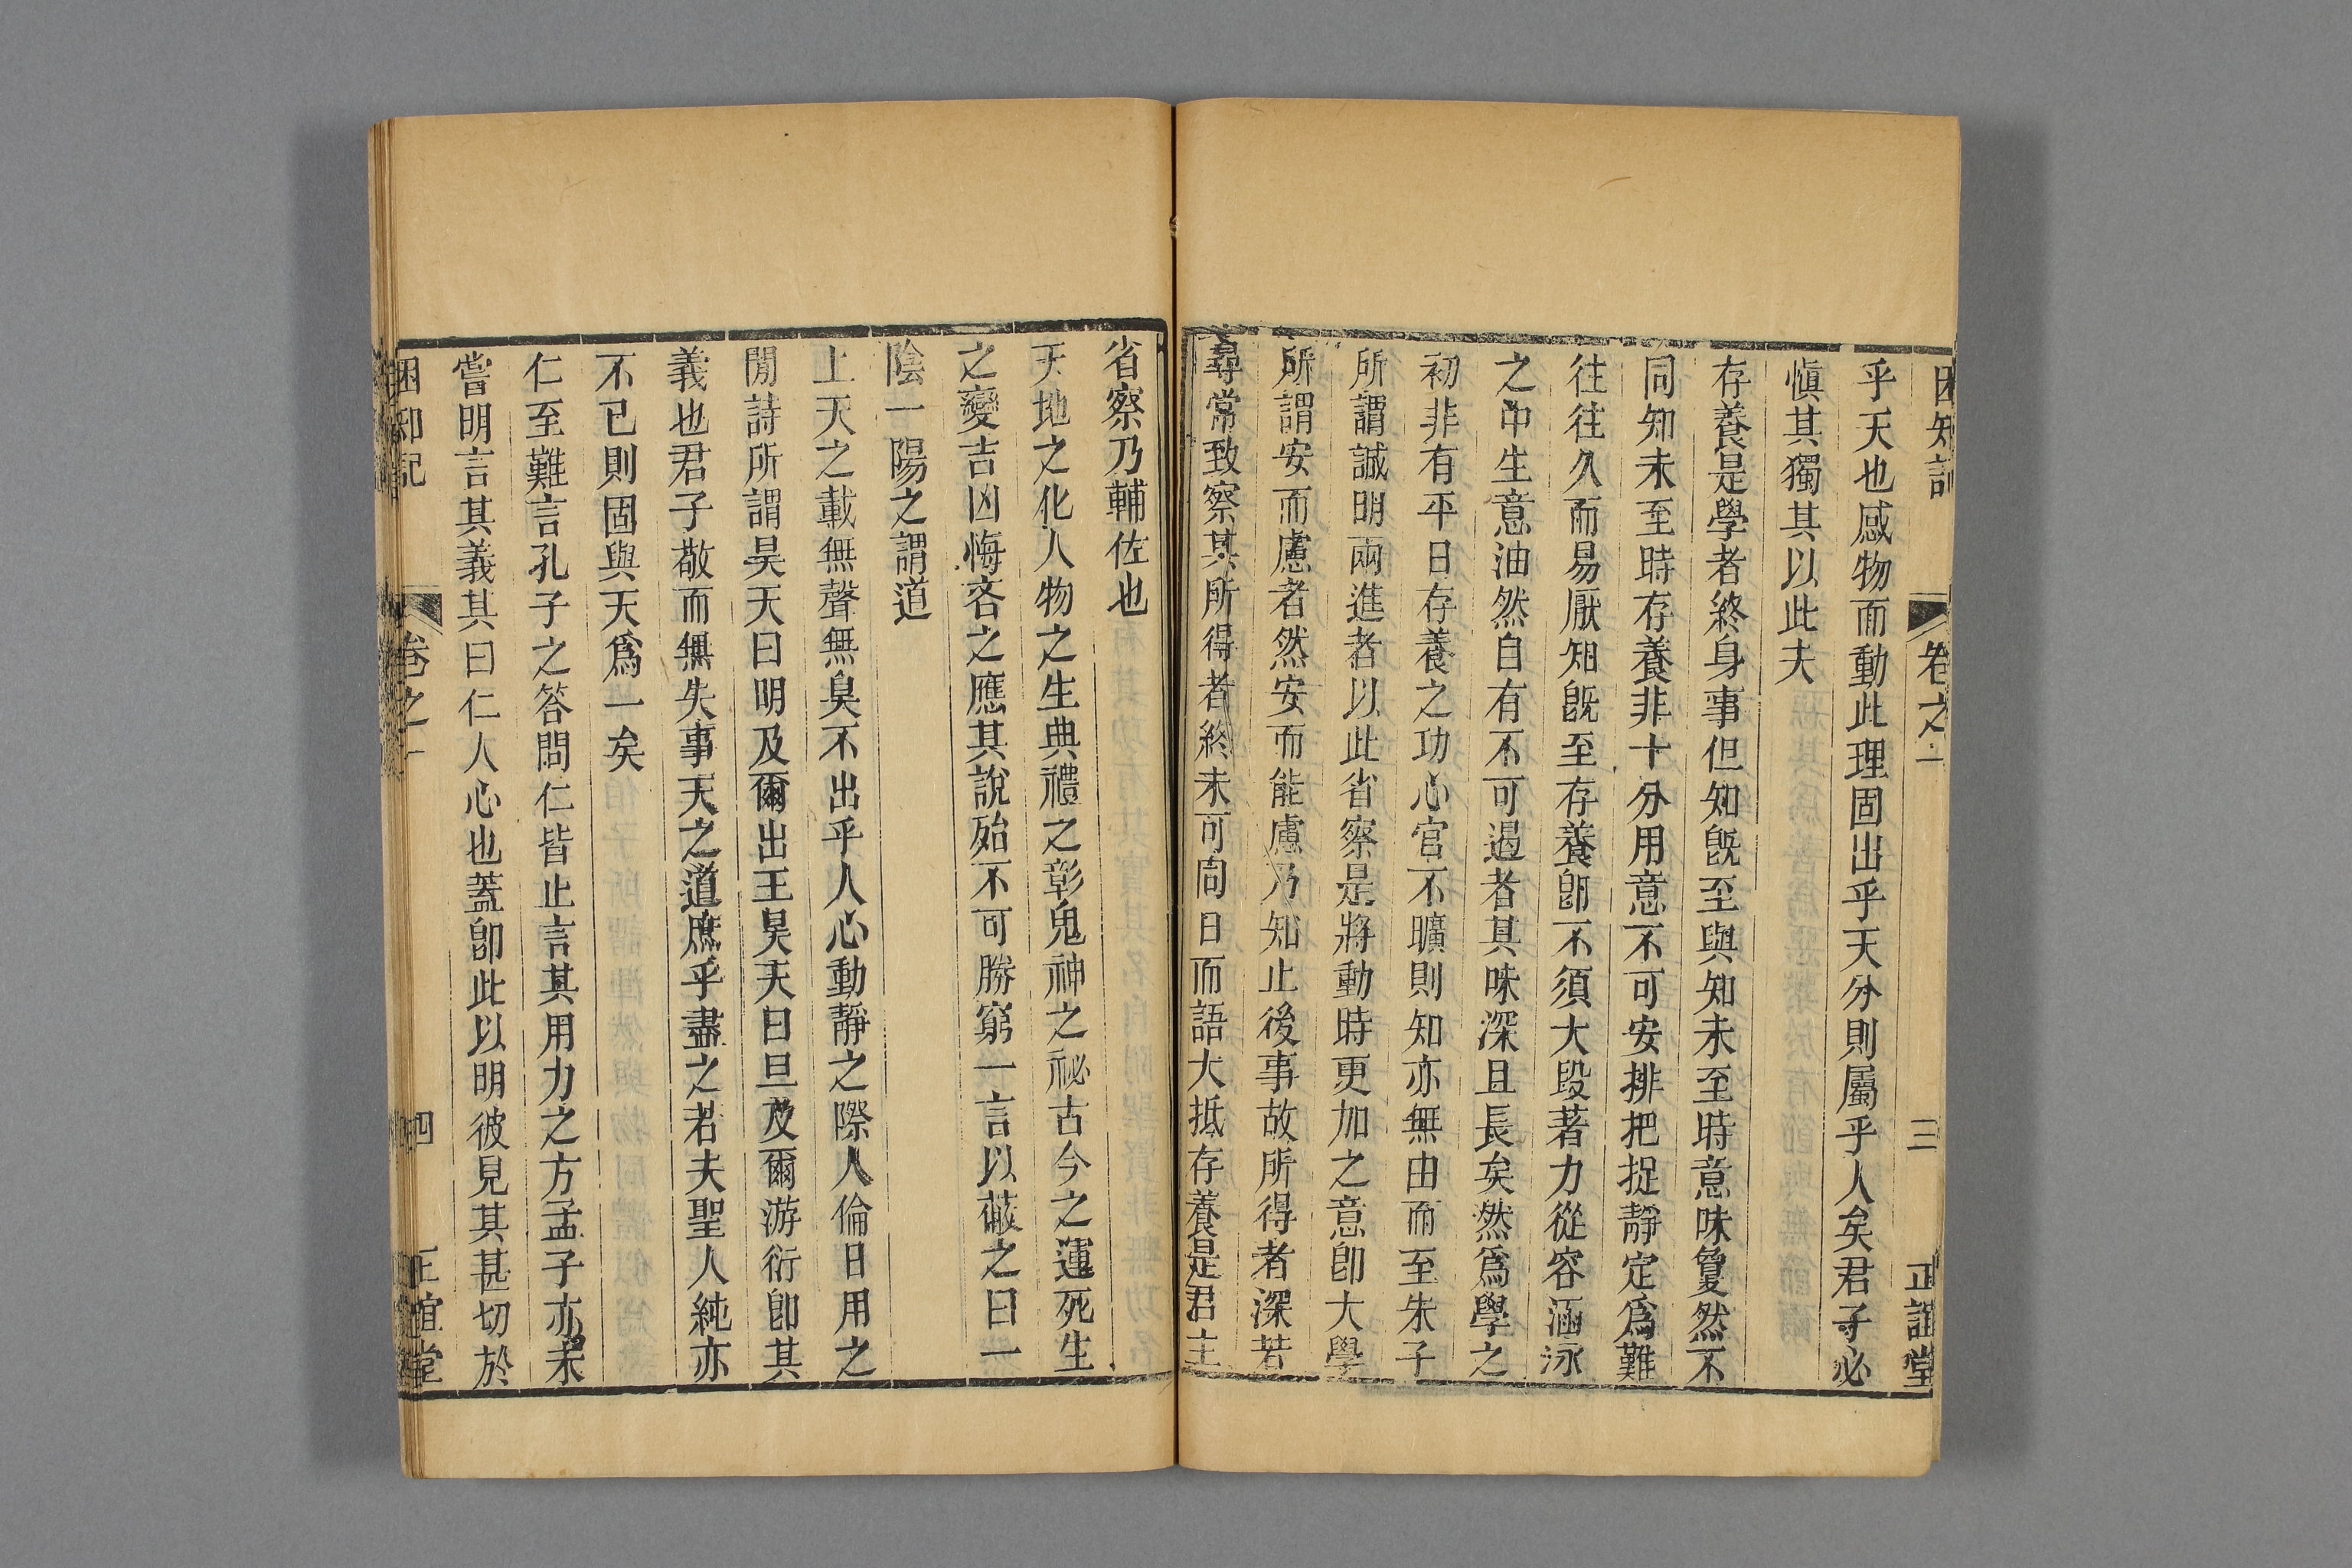 困知記 卷之一 三 正誼堂
乎天也感物而動此理固出乎天分則屬乎人矣君子必
慎其獨其以此夫
存養是學者終身事但知旣至與知未至時意味敻然不
同知未至時存養非十分用意不可安排把捉靜定爲難
往往久而易厭知旣至存養卽不須大段著力從容涵泳
之中生意油然自有不可遏者其味深且長矣然爲學之
初非有平日存養之功心官不曠則知亦無由而至朱子
所謂誠明兩進者以此省察是將動時更加之意卽大學
所謂安而慮者然安而能慮乃知止後事故所得者深若
尋常致察其所得者終未可同日而語大抵存養是君主
省察乃輔佐也
天地之化人物之生典禮之彰鬼神之祕古今之運死生
之變吉凶悔吝之應其說殆不可勝窮一言以蔽之曰一
陰一陽之謂道
上天之載無聲無臭不出乎人心動靜之際人倫日用之
閒詩所謂昊天曰明及爾出王昊天曰旦及爾游衍卽其
義也君子敬而無失事天之道庶乎盡之若夫聖人純亦
不已則固與天爲一矣
仁至難言孔子之答問仁皆止言其用力之方孟子亦未
嘗明言其義其曰仁人心也蓋卽此以明彼見其甚切於
困知記 卷之一 四 正誼堂